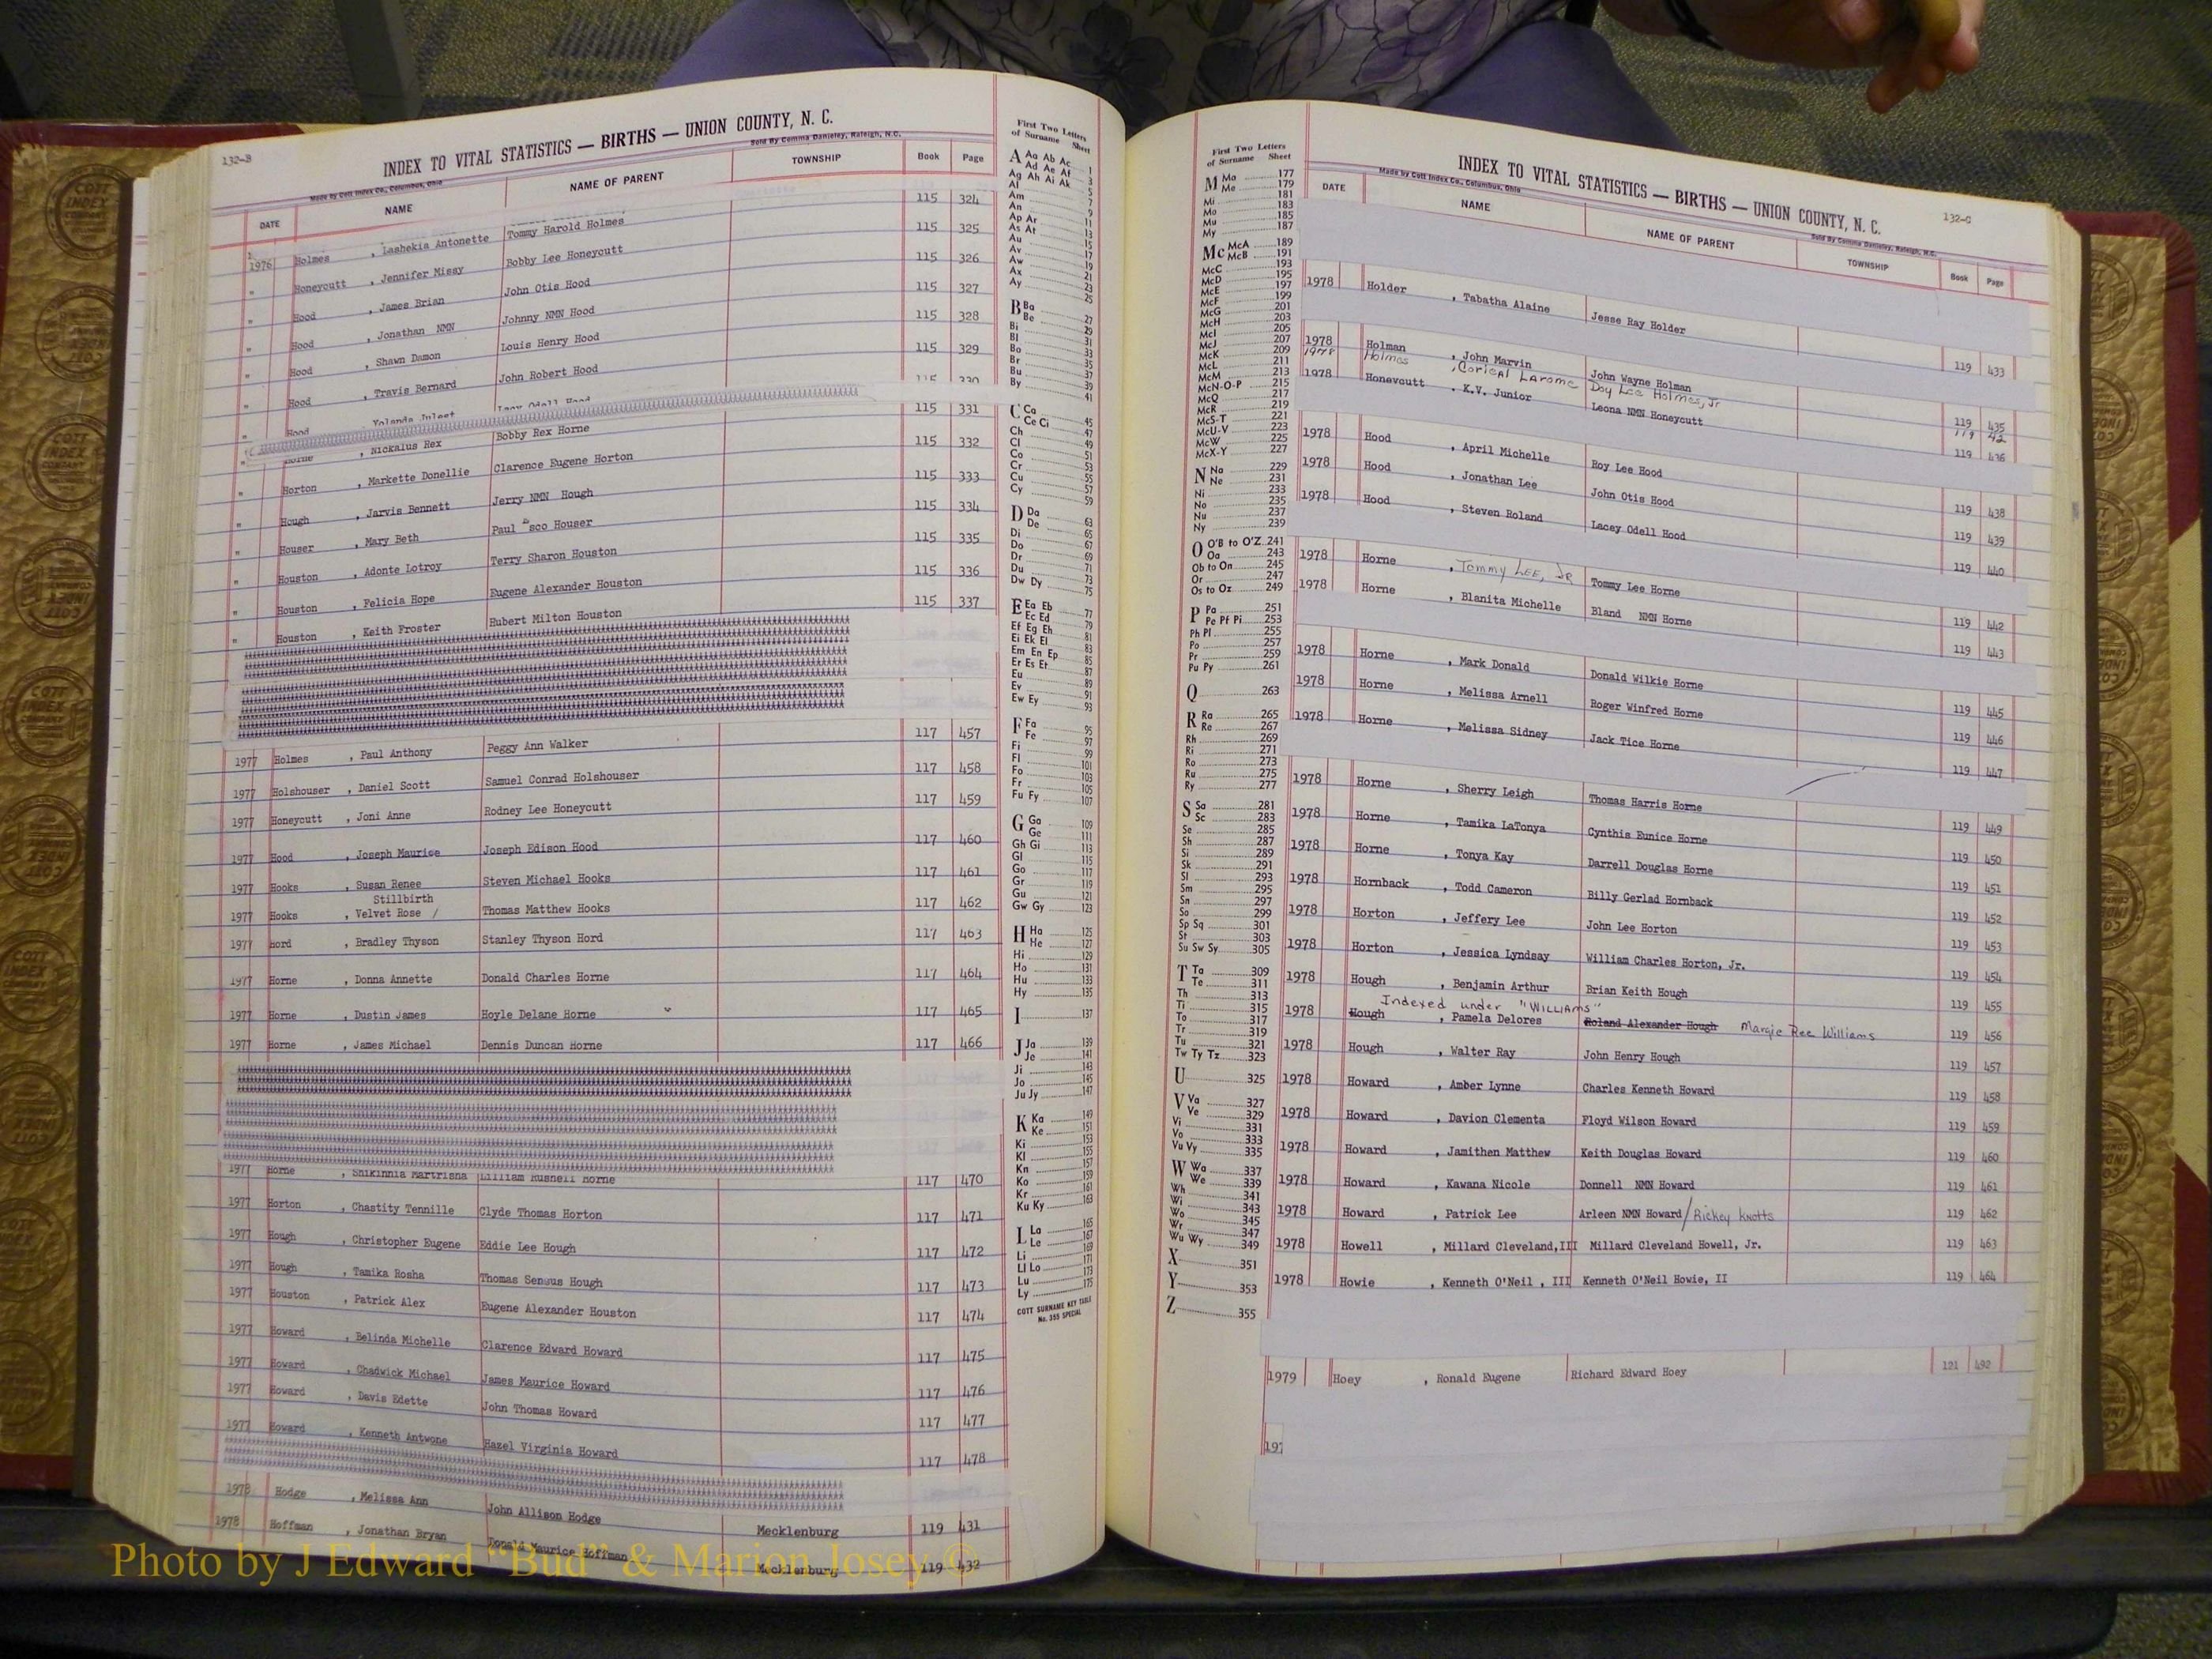 132-B
INDEX TO VITAL STATISTICS — BIRTHS — UNION COUNTY, N. C.
Made by Cott Index Co., Columbus, Ohio Sold By Comma Danieley, Raleigh, N.C.
DATE NAME NAME OF PARENT TOWNSHIP Book Page
1976 Holmes , Lashekia Antonette Tommy Harold Holmes 115 324
" Honeycutt , Jennifer Missy Bobby Lee Honeycutt 115 325
" Hood , James Brian John Otis Hood 115 326
" Hood , Jonathan NMN Johnny NMN Hood 115 327
" Hood , Shawn Damon Louis Henry Hood 115 328
" Hood , Travis Bernard John Robert Hood 115 329
" Hood Odell Hood 115 330
" Horne , Nickalus Rex Bobby Rex Horne 115 331
" Horton , Markette Donellie Clarence Eugene Horton 115 332
" Hough , Jarvis Bennett Jerry NMN Hough 115 333
" Houser , Mary Beth Paul sco Houser 115 334
" Houston , Adonte Lotroy Terry Sharon Houston 115 335
" Houston , Felicia Hope Eugene Alexander Houston 115 336
" Houston , Keith Froster Hubert Milton Houston 115 337
1977 Holmes , Paul Anthony Peggy Ann Walker 117 457
1977 Holshouser , Daniel Scott Samuel Conrad Holshouser 117 458
1977 Honeycutt , Joni Anne Rodney Lee Honeycutt 117 459
1977 Hood , Joseph Maurice Joseph Edison Hood 117 460
1977 Hooks , Susan Renee Steven Michael Hooks 117 461
Stillbirth
1977 Hooks , Velvet Rose / Thomas Matthew Hooks 117 462
1977 Hord , Bradley Thyson Stanley Thyson Hord 117 463
1977 Horne , Donna Annette Donald Charles Horne 117 464
1977 Horne , Dustin James Hoyle Delane Horne 117 465
1977 Horne , James Michael Dennis Duncan Horne 117 466
1977 Horne , Shikinnia Martrisha Horne 117 470
1977 Horton , Chastity Tennille Clyde Thomas Horton 117 471
1977 Hough , Christopher Eugene Eddie Lee Hough 117 472
1977 Hough , Tamika Rosha Thomas Hough 117 473
1977 Houston , Patrick Alex Eugene Alexander Houston 117 474
1977 Howard , Belinda Michelle Clarence Edward Howard 117 475
1977 Howard , Chadwick Michael James Maurice Howard 117 476
1977 Howard , Davis Edette John Thomas Howard 117 477
1977 Howard , Kenneth Antwone Hazel Virginia Howard 117 478
1978 Hodge , Melissa Ann John Allison Hodge Mecklenburg 119 431
1978 Hoffman , Jonathan Bryan Donald Maurice Hoffman Mecklenburg 119 432
First Two Letters
of Surname Sheet
A Aa Ab Ac 1
Ad Ae Af 3
Ag Ah Ai Ak 5
Al 7
Am 9
An 11
Ap Ar 13
As At 15
Au 17
Av 19
Aw 21
Ax 23
Ay 25
B Ba 27
Be 29
Bi 31
Bl 33
Bo 35
Br 39
Bu 41
By
C Ca 45
Ce Ci 47
Ch 49
Cl 51
Co 53
Cr 55
Cu 57
Cy 59
D Da 63
De 65
Di 67
Do 69
Dr 71
Du 73
Dw Dy 75
E Ea Eb 77
Ec Ed 79
Ef Eg Eh 81
Ei Ek El 83
Em En Ep 85
Er Es Et 87
Eu 89
Ev 91
Ew Ey 93
F Fa 95
Fe 97
Fi 99
Fl 101
Fo 103
Fr 105
Fu Fy 107
G Ga 109
Ge 111
Gh Gi 113
Gl 115
Go 117
Gr 119
Gu 121
Gw Gy 123
H Ha 125
He 127
Hi 129
Ho 131
Hu 133
Hy 135
I 137
J Ja 139
Je 141
Ji 143
Jo 145
Ju Jy 147
K Ka 149
Ke 151
Ki 153
Kl 155
Kn 157
Ko 159
Kr 161
Ku Ky 163
L La 165
Le 167
Li 169
Ll Lo 171
Lu 173
Ly 175
COTT SURNAME KEY TABLE
No. 355 SPECIAL
First Two Letters
of Surname Sheet
M Ma 177
Me 179
Mi 181
Mo 183
Mu 185
My 187
Mc McA 189
McB 191
McC 193
McD 195
McE 197
McF 199
McG 201
McH 203
McI 205
McJ 207
McK 209
McL 211
McM 213
McN-O-P 215
McQ 217
McR 219
McS-T 221
McU-V 223
McW 225
McX-Y 227
N Na 229
Ne 231
Ni 233
No 235
Nu 237
Ny 239
O O'B to O'Z 241
Oa 243
Ob to On 245
Or 247
Os to Oz 249
P Pa 251
Pe Pf Pi 253
Ph Pl 255
Po 257
Pr 259
Pu Py 261
Q 263
R Ra 265
Re 267
Rh 269
Ri 271
Ro 273
Ru 275
Ry 277
S Sa 281
Sc 283
Se 285
Sh 287
Si 289
Sk 291
Sl 293
Sm 295
Sn 297
So 299
Sp Sq 301
St 303
Su Sw Sy 305
T Ta 309
Te 311
Th 313
Ti 315
To 317
Tr 319
Tu 321
Tw Ty Tz 323
U 325
V Va 327
Ve 329
Vi 331
Vo 333
Vu Vy 335
W Wa 337
We 339
Wh 341
Wi 343
Wo 345
Wr 347
Wu Wy 349
X 351
Y 353
Z 355
132-C
INDEX TO VITAL STATISTICS — BIRTHS — UNION COUNTY, N. C.
Made by Cott Index Co., Columbus, Ohio Sold By Comma Danieley, Raleigh, N.C.
DATE NAME NAME OF PARENT TOWNSHIP Book Page
1978 Holder , Tabatha Alaine Jesse Ray Holder 119 433
1978 Holman , John Marvin John Wayne Holman 119 435
1978 Holmes , Corical Larome Doy Lee Holmes, Jr 119
1978 Honeycutt , K.V. Junior Leona NMN Honeycutt 119 436
1978 Hood , April Michelle Roy Lee Hood 119 438
1978 Hood , Jonathan Lee John Otis Hood 119 439
1978 Hood , Steven Roland Lacey Odell Hood 119 440
1978 Horne , Tommy LEE, JR Tommy Lee Horne 119 442
1978 Horne , Blanita Michelle Bland NMN Horne 119 443
1978 Horne , Mark Donald Donald Wilkie Horne 119 445
1978 Horne , Melissa Arnell Roger Winfred Horne 119 446
1978 Horne , Melissa Sidney Jack Tice Horne 119 447
1978 Horne , Sherry Leigh Thomas Harris Horne 119 449
1978 Horne , Tamika LaTonya Cynthis Eunice Horne 119 450
1978 Horne , Tonya Kay Darrell Douglas Horne 119 451
1978 Hornback , Todd Cameron Billy Gerlad Hornback 119 452
1978 Horton , Jeffery Lee John Lee Horton 119 453
1978 Horton , Jessica Lyndsay William Charles Horton, Jr. 119 454
1978 Hough , Benjamin Arthur Brian Keith Hough 119 455
Indexed under "WILLIAMS"
1978 Hough , Pamela Delores Roland Alexander Hough Margie Dee Williams 119 456
1978 Hough , Walter Ray John Henry Hough 119 457
1978 Howard , Amber Lynne Charles Kenneth Howard 119 458
1978 Howard , Davion Clementa Floyd Wilson Howard 119 459
1978 Howard , Jamithen Matthew Keith Douglas Howard 119 460
1978 Howard , Kawana Nicole Donnell NMN Howard 119 461
1978 Howard , Patrick Lee Arleen NMN Howard/Rickey Knotts 119 462
1978 Howell , Millard Cleveland,III Millard Cleveland Howell, Jr. 119 463
1978 Howie , Kenneth O'Neil , III Kenneth O'Neil Howie, II 119 464
1979 Hoey , Ronald Eugene Richard Edward Hoey 121 492
197
Photo by J Edward “Bud” & Marion Josey ©